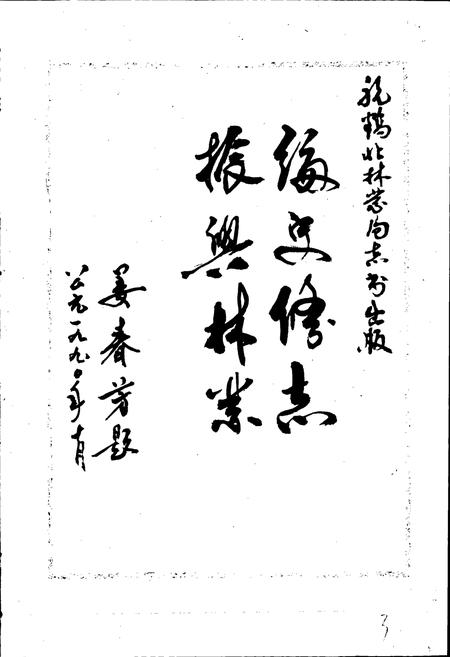 祝鹤北林业局志书出版
编史修志
振兴林业
姜春芳题
公元一九九〇年十月
3